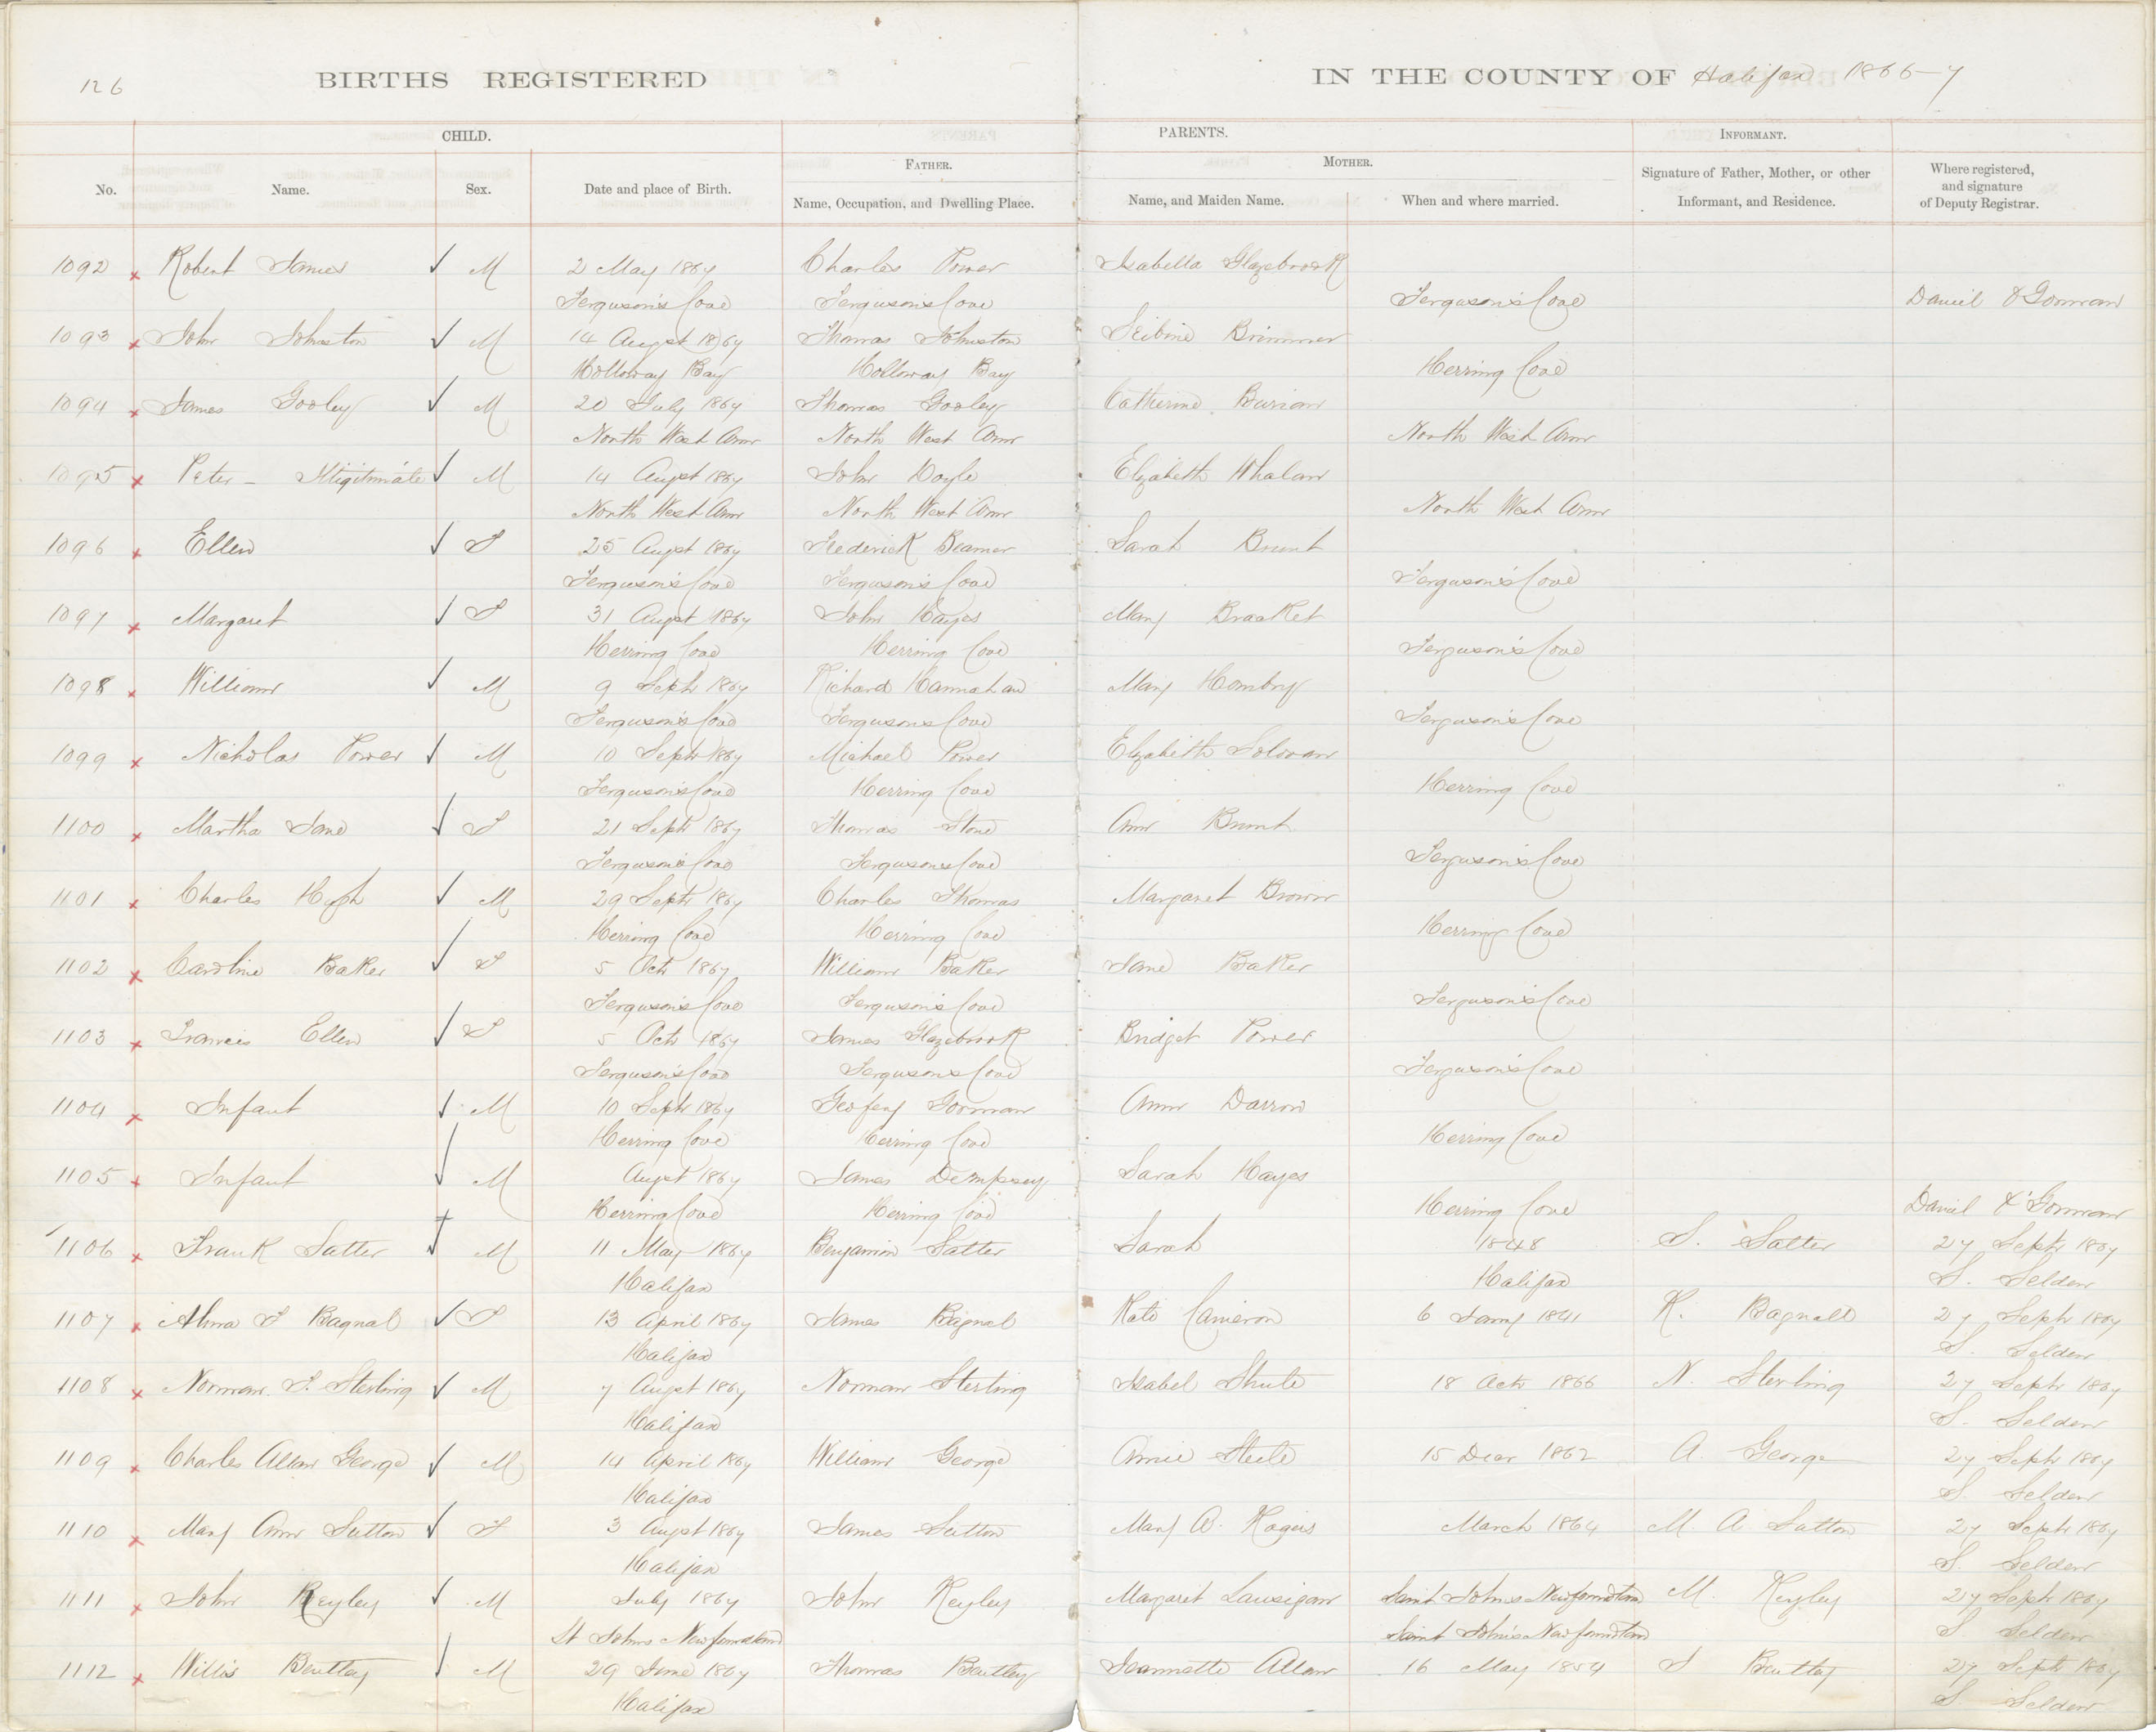 126 BIRTHS REGISTERED IN THE COUNTY OF Halifax 1866-7
CHILD. PARENTS. INFORMANT.
FATHER. MOTHER.
No. Name. Sex. Date and place of Birth. Name, Occupation, and Dwelling Place. Name, and Maiden Name. When and where married. Signature of Father, Mother, or other Informant, and Residence. Where registered, and signature of Deputy Registrar.
1092 Robert James M 2 May 1867 Charles Power Isabella Glazebrook
Ferguson's Cove Ferguson's Cove Ferguson's Cove Daniel O'Gorman
1093 John Johnston M 14 Augst 1867 Thomas Johnston Brimmer
Holloway Bay Holloway Bay Herring Cove
1094 James Gooley M 20 July 1867 Thomas Gooley Catherine
North West Arm North West Arm North West Arm
1095 Peter - Illigitimate M 14 Augst 1867 John Doyle Elizabeth Whalan
North West Arm North West Arm North West Arm
1096 Ellen F 25 Augst 1867 Frederick Beamer Sarah Brunt
Ferguson's Cove Ferguson's Cove Ferguson's Cove
1097 Margaret F 31 Augst 1867 John Hayes Mary Bracket
Herring Cove Herring Cove Ferguson's Cove
1098 William M 9 Sept 1867 Richard Hannahan Mary
Ferguson's Cove Ferguson's Cove Ferguson's Cove
1099 Nicholas Power M 10 Septr 1867 Michael Power Elizabeth
Ferguson's Cove Herring Cove Herring Cove
1100 Martha Jane F 21 Septr 1867 Thomas Stone Ann Brunt
Ferguson's Cove Ferguson's Cove Ferguson's Cove
1101 Charles Hugh M 29 Septr 1867 Charles Thomas Margaret Brown
Herring Cove Herring Cove Herring Cove
1102 Caroline Baker F 5 Octr 1867 William Baker Jane Baker
Ferguson's Cove Ferguson's Cove Ferguson's Cove
1103 Francis Ellen F 5 Octr 1867 James Glazebrook Bridget Power
Ferguson's Cove Ferguson's Cove Ferguson's Cove
1104 Infant M 10 Septr 1867 Geofery Gorman Ann Darrow
Herring Cove Herring Cove Herring Cove
1105 Infant M Augst 1867 James Dempsey Sarah Hayes
Herring Cove Herring Cove Herring Cove Daniel O'Gorman
1106 Frank Salter M 11 May 1867 Benjamin Salter Sarah 1848 S. Salter 27 Septr 1867
Halifax Halifax S. Selden
1107 Alma F Bagnal F 13 April 1867 James Bagnal Kate Cameron 6 Jany 1841 K. Bagnall 27 Septr 1867
Halifax S. Selden
1108 Norman F. Sterling M 7 Augst 1867 Norman Sterling Isabel Shute 18 Octr 1866 N. Sterling 27 Septr 1867
Halifax S. Selden
1109 Charles Allan George M 14 April 1867 William George Annie Steele 15 Decr 1862 A. George 27 Septr 1867
Halifax S. Selden
1110 Mary Ann Sutton F 3 Augst 1867 James Sutton Mary A. Rogers March 1864 M. A. Sutton 27 Septr 1867
Halifax S. Selden
1111 John Keyley M July 1867 John Keyley Margaret Saint John's Newfoundland M. Keyley 27 Septr 1867
St Johns Newfoundland Saint John's Newfoundland S Selden
1112 Willis Bentley M 29 June 1867 Thomas Bentley Jeannette Allan 16 May 1854 J Bentley 27 Septr 1867
Halifax S. Selden